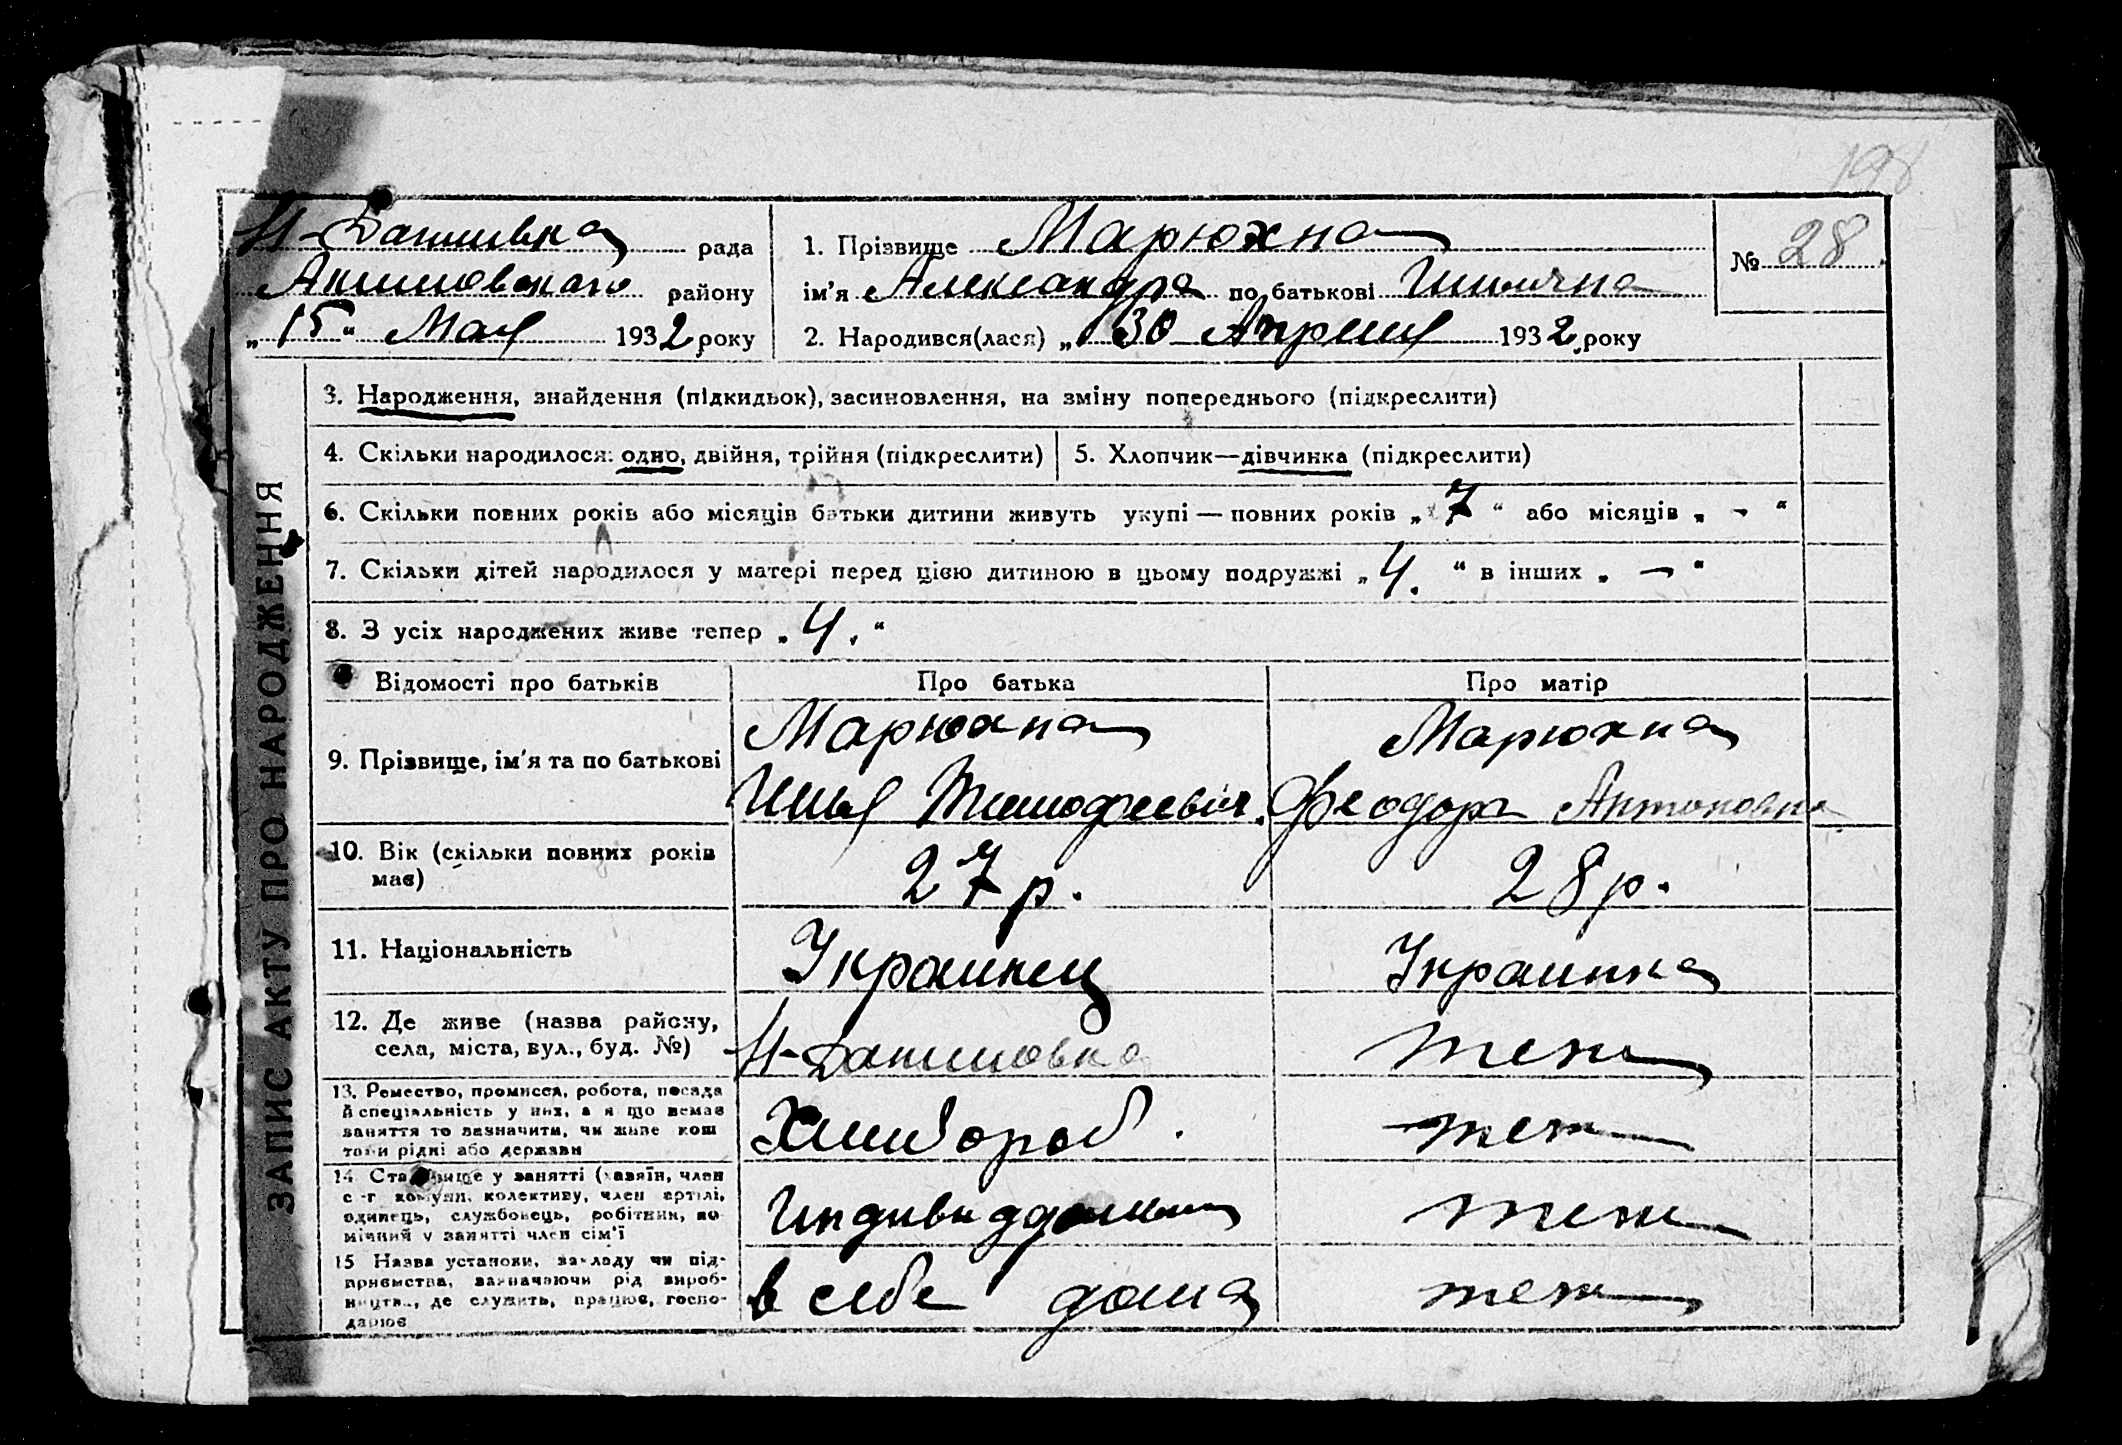 198
Н-Даниловка рада
Акимовского району
„15“ Мая 1932 року
1. Прізвище Марюхна
ім'я Александра по батькові Ильична
№ 28
2. Народився(лася) „30 Апреля 1932 року
ЗАПИС АКТУ ПРО НАРОДЖЕННЯ
3. Народження, знайдення (підкидьок), засиновлення, на зміну попереднього (підкреслити)
4. Скільки народилося: одно, двійня, трійня (підкреслити)
5. Хлопчик—дівчинка (підкреслити)
6. Скільки повних років або місяців батьки дитини живуть укупі — повних років „7“ або місяців „-“
7. Скільки дітей народилося у матері перед цією дитиною в цьому подружжі „4.“ в інших „-“
8. З усіх народжених живе тепер „4.“
Відомості про батьків
Про батька
Про матір
9. Прізвище, ім'я та по батькові
Марюхна
Илья Тимофеевич.
Марюхна
Феодора Антоновна
10. Вік (скільки повних років
має)
27 р.
28 р.
11. Національність
Украинец
Украинка
12. Де живе (назва району,
села, міста, вул., буд. №)
Н-Даниловка
теж
13. Ремество, промисел, робота, посада
й спеціяльність у них, а я що немає
заняття то зазначити, чи живе кош
тами рідні або держави
Хлибороб.
теж
14 Становище у занятті (хазяїн, член
с-г комуни, колективу, член артілі,
одинець, службовець, робітник, по
мічний у занятті член сім'ї
теж
15 Назва установи, закладу чи під-
приємства, зазначаючи рід вироб-
ництва, де служить, працює, госпо-
дарює
в себе дома
теж